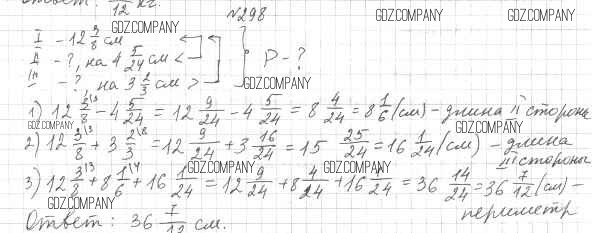 Ответ: 12 кг.
N298
GDZ.COMPANY GDZ.COMPANY GDZ.COMPANY
I - 12 3/8 см
II - ?, на 4 5/24 см <
III - ?, на 3 2/3 см >
P - ?
GDZ.COMPANY
1) 12 3/8 - 4 5/24 = 12 9/24 - 4 5/24 = 8 4/24 = 8 1/6 (см) - длина II стороны
GDZ.COMPANY GDZ.COMPANY
2) 12 3/8 + 3 2/3 = 12 9/24 + 3 16/24 = 15 25/24 = 16 1/24 (см) - длина
III стороны
GDZ.COMPANY GDZ.COMPANY
3) 12 3/8 + 8 1/6 + 16 1/24 = 12 9/24 + 8 4/24 + 16 1/24 = 36 14/24 = 36 7/12 (см) -
периметр
GDZ.COMPANY
Ответ: 36 7/12 см.